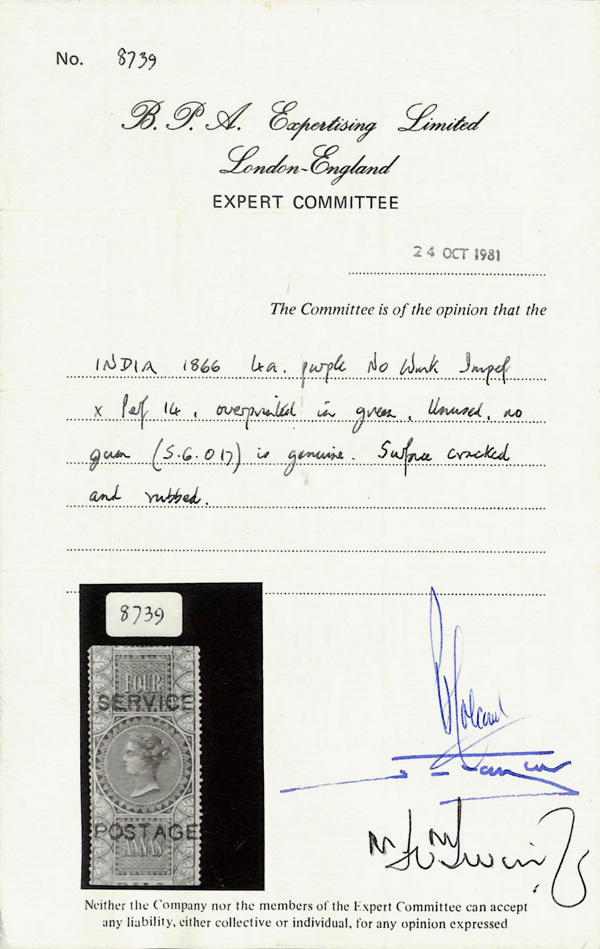 No. 8739
B. P. A. Expertising Limited
London-England
EXPERT COMMITTEE
24 OCT 1981
The Committee is of the opinion that the
INDIA 1866 4a. purple No Wmk Imperf
x Perf 14, overprinted in green. Unused, no
gum (S.G. O17) is genuine. Surface cracked
and rubbed.
8739
FOUR
SERVICE
POSTAGE
ANNAS
Neither the Company nor the members of the Expert Committee can accept
any liability, either collective or individual, for any opinion expressed